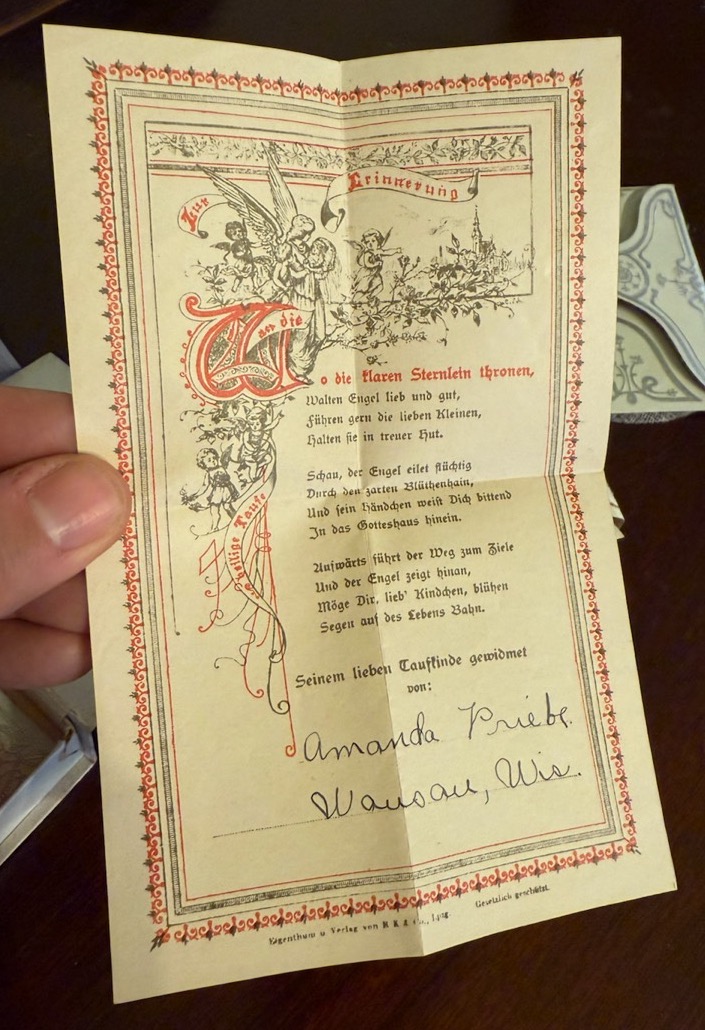 Zur Erinnerung
an die
heilige Taufe
Wo die klaren Sternlein thronen,
Walten Engel lieb und gut,
Führen gern die lieben Kleinen,
Halten sie in treuer Hut.
Schau, der Engel eilet flüchtig
Durch den zarten Blüthenhain,
Und sein Händchen weist Dich bittend
In das Gotteshaus hinein.
Aufwärts führt der Weg zum Ziele
Und der Engel zeigt hinan,
Möge Dir, lieb' Kindchen, blühen
Segen auf des Lebens Bahn.
Seinem lieben Taufkinde gewidmet
von:
Amanda Priebe
Wausau, Wis.
Eigenthum u Verlag von
Gesetzlich geschützt.